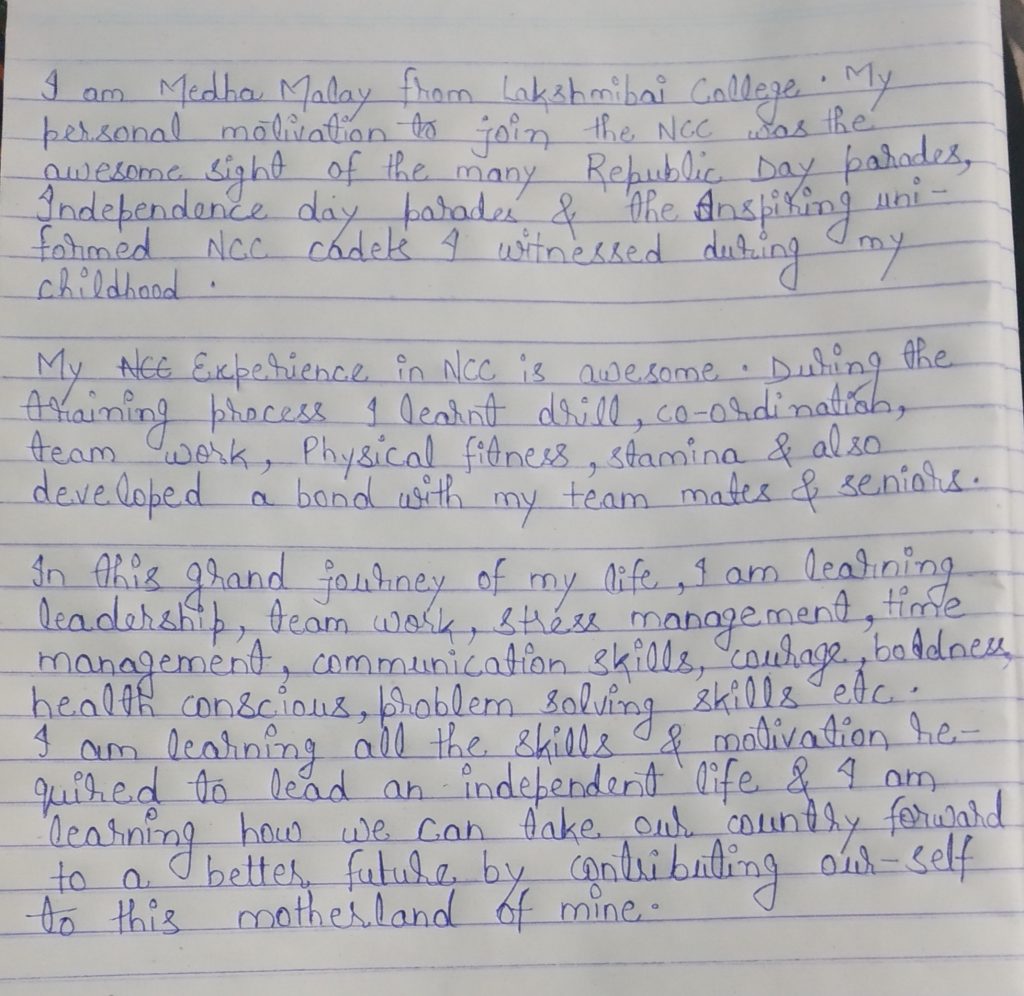 I am Medha Malay from Lakshmibai College. My
personal motivation to join the NCC was the
awesome sight of the many Republic Day parades,
Independence day parades & the Inspiring uni-
formed NCC cadets I witnessed during my
childhood.
My NCC Experience in NCC is awesome. During the
training process I learnt drill, co-ordination,
team work, Physical fitness, stamina & also
developed a bond with my team mates & seniors.
In this grand journey of my life, I am learning
leadership, team work, stress management, time
management, communication skills, courage, boldness,
health conscious, problem solving skills etc.
I am learning all the skills & motivation re-
quired to lead an independent life & I am
learning how we can take our country forward
to a better future by contributing our-self
to this motherland of mine.